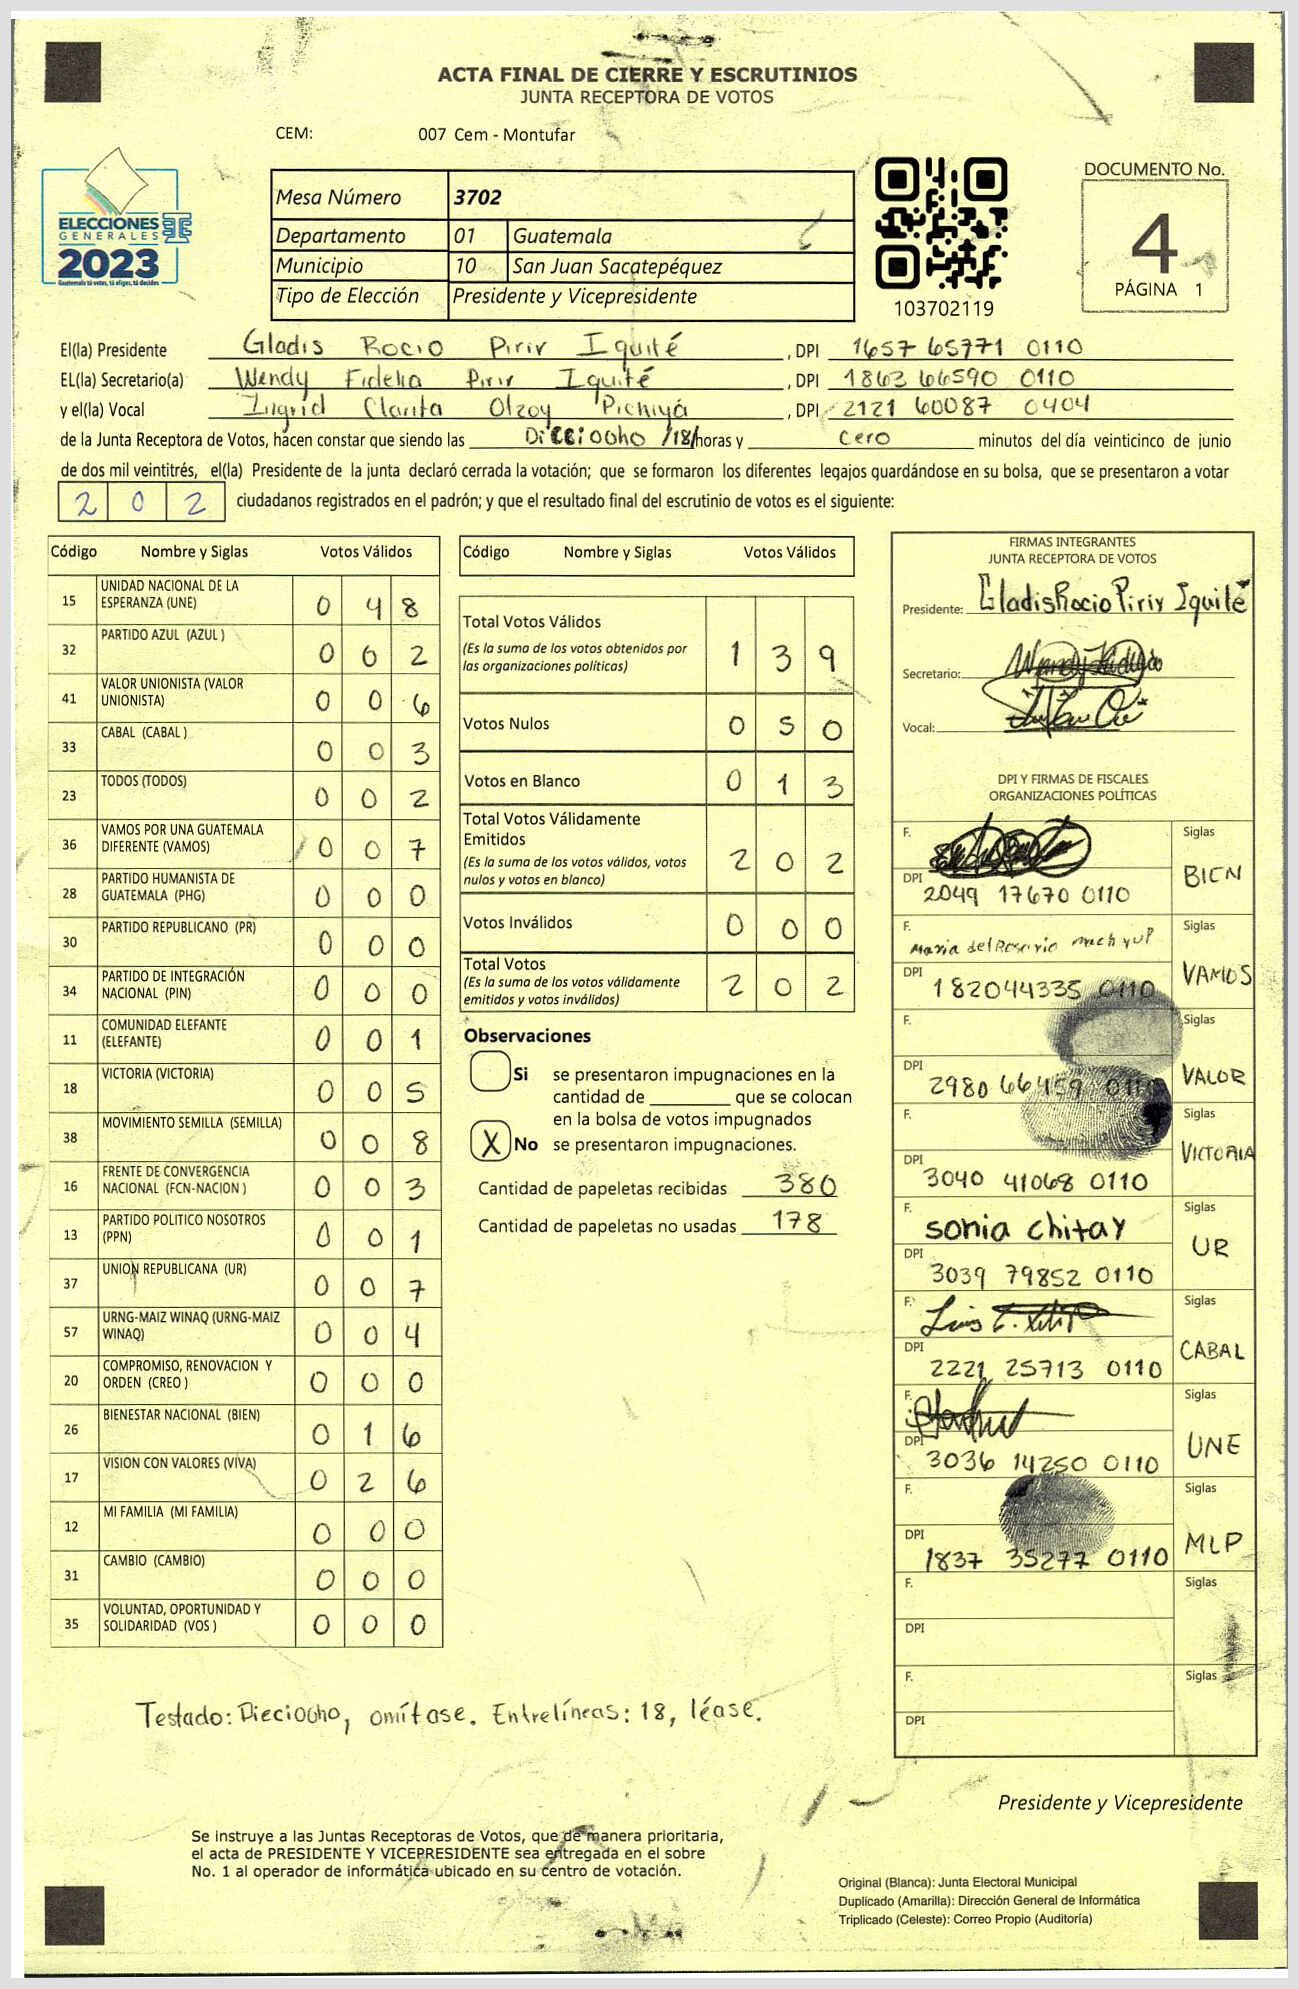 ACTA FINAL DE CIERRE Y ESCRUTINIOS
JUNTA RECEPTORA DE VOTOS
CEM: 007 Cem - Montufar
ELECCIONES
GENERALES
2023
Guatemala tú votes, tú eliges, tú decides
Mesa Número 3702
Departamento 01 Guatemala
Municipio 10 San Juan Sacatepéquez
Tipo de Elección Presidente y Vicepresidente
103702119
DOCUMENTO No.
4
PÁGINA 1
El(la) Presidente Gladis Rocio Pirir Iquité , DPI 1657 65771 0110
EL(la) Secretario(a) Wendy Fidelia Pirir Iquité , DPI 1863 66590 0110
y el(la) Vocal Ingrid Clarita Olzoy Pichiyá , DPI 2121 60087 0404
de la Junta Receptora de Votos, hacen constar que siendo las Dieciocho /18/ horas y cero minutos del día veinticinco de junio
de dos mil veintitrés, el(la) Presidente de la junta declaró cerrada la votación; que se formaron los diferentes legajos quardándose en su bolsa, que se presentaron a votar
202 ciudadanos registrados en el padrón; y que el resultado final del escrutinio de votos es el siguiente:
Código Nombre y Siglas Votos Válidos
15 UNIDAD NACIONAL DE LA
ESPERANZA (UNE) 0 4 8
32 PARTIDO AZUL (AZUL ) 0 0 2
41 VALOR UNIONISTA (VALOR
UNIONISTA) 0 0 6
33 CABAL (CABAL ) 0 0 3
23 TODOS (TODOS) 0 0 2
36 VAMOS POR UNA GUATEMALA
DIFERENTE (VAMOS) 0 0 7
28 PARTIDO HUMANISTA DE
GUATEMALA (PHG) 0 0 0
30 PARTIDO REPUBLICANO (PR) 0 0 0
34 PARTIDO DE INTEGRACIÓN
NACIONAL (PIN) 0 0 0
11 COMUNIDAD ELEFANTE
(ELEFANTE) 0 0 1
18 VICTORIA (VICTORIA) 0 0 5
38 MOVIMIENTO SEMILLA (SEMILLA) 0 0 8
16 FRENTE DE CONVERGENCIA
NACIONAL (FCN-NACION ) 0 0 3
13 PARTIDO POLITICO NOSOTROS
(PPN) 0 0 1
37 UNION REPUBLICANA (UR) 0 0 7
57 URNG-MAIZ WINAQ (URNG-MAIZ
WINAQ) 0 0 4
20 COMPROMISO, RENOVACION Y
ORDEN (CREO ) 0 0 0
26 BIENESTAR NACIONAL (BIEN) 0 1 6
17 VISION CON VALORES (VIVA) 0 2 6
12 MI FAMILIA (MI FAMILIA) 0 0 0
31 CAMBIO (CAMBIO) 0 0 0
35 VOLUNTAD, OPORTUNIDAD Y
SOLIDARIDAD (VOS ) 0 0 0
Código Nombre y Siglas Votos Válidos
Total Votos Válidos
(Es la suma de los votos obtenidos por
las organizaciones políticas) 1 3 9
Votos Nulos 0 5 0
Votos en Blanco 0 1 3
Total Votos Válidamente
Emitidos
(Es la suma de los votos válidos, votos
nulos y votos en blanco) 2 0 2
Votos Inválidos 0 0 0
Total Votos
(Es la suma de los votos válidamente
emitidos y votos inválidos) 2 0 2
Observaciones
Si se presentaron impugnaciones en la
cantidad de ________ que se colocan
en la bolsa de votos impugnados
X No se presentaron impugnaciones.
Cantidad de papeletas recibidas 380
Cantidad de papeletas no usadas 178
FIRMAS INTEGRANTES
JUNTA RECEPTORA DE VOTOS
Presidente: Gladis Rocio Pirir Iquité
Secretario:
Vocal:
DPI Y FIRMAS DE FISCALES
ORGANIZACIONES POLÍTICAS
F. Siglas
DPI 2049 17670 0110 BIEN
F. Maria del Rosario Siglas
DPI 182044335 0110 VAMOS
F. Siglas
DPI 2980 66459 0110 VALOR
F. Siglas
DPI 3040 41068 0110 VICTORIA
F. sonia chitay Siglas
DPI 3039 79852 0110 UR
F. Luis Siglas
DPI 2221 25713 0110 CABAL
F. Siglas
DPI 3036 14250 0110 UNE
F. Siglas
DPI 1837 35277 0110 MLP
F. Siglas
DPI
F. Siglas
DPI
Testado: Dieciocho, omítase. Entrelíneas: 18, léase.
Presidente y Vicepresidente
Se instruye a las Juntas Receptoras de Votos, que de manera prioritaria,
el acta de PRESIDENTE Y VICEPRESIDENTE sea entregada en el sobre
No. 1 al operador de informática ubicado en su centro de votación.
Original (Blanca): Junta Electoral Municipal
Duplicado (Amarilla): Dirección General de Informática
Triplicado (Celeste): Correo Propio (Auditoría)